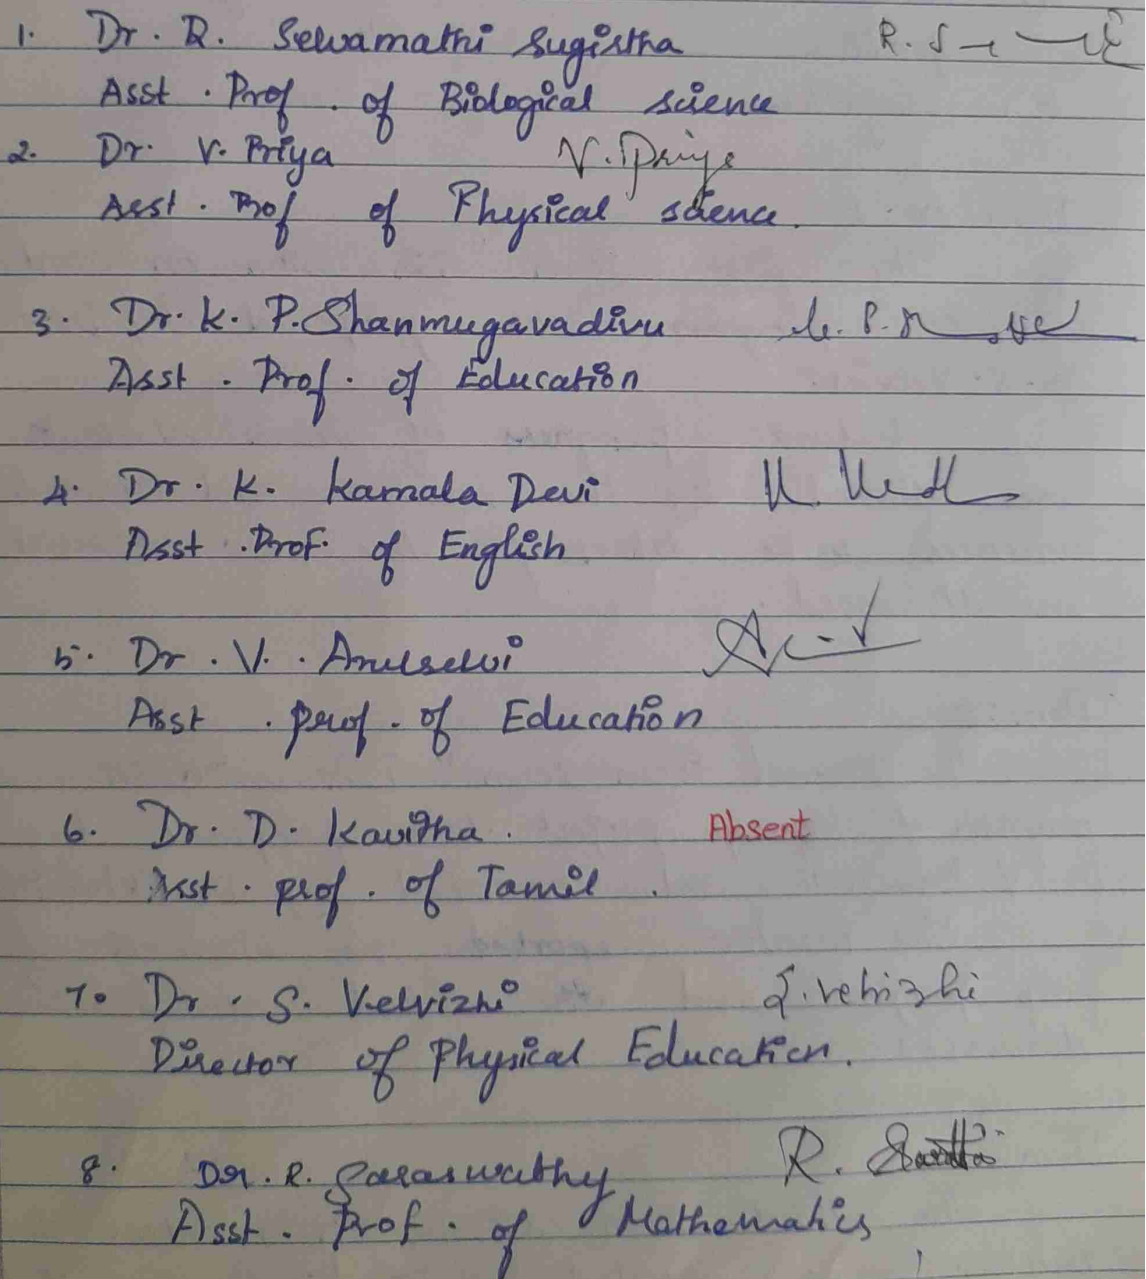 1. Dr. R. Selvamathi Sugirtha R. S
Asst. Prof. of Biological science
2. Dr. V. Priya V. Priya
Asst. Prof of Physical science.
3. Dr. K. P. Shanmugavadivu K. P.
Asst. Prof. of Education
4. Dr. K. Kamala Devi K.
Asst. Prof. of English
5. Dr. V. Arulselvi
Asst. prof. of Education
6. Dr. D. Kavitha. Absent
Asst. prof. of Tamil.
7. Dr. S. Velvizhi S. Velvizhi
Director of Physical Education.
8. Dr. R. Saraswathy R.
Asst. Prof. of Mathematics